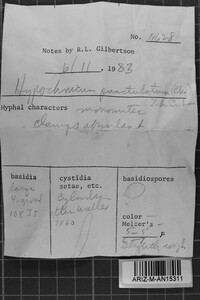 No. 14628
Notes by R.L. Gilbertson
6/11, 1983
Hypochnicium punctulatum
Hyphal characters monomitic
clamps abundant
basidia
large
4-spored
cystidia
setae, etc.
Cylindric
thin-walled
basidiospores
color —
Melzer's —
slightly rough
ARIZ-M-AN15311